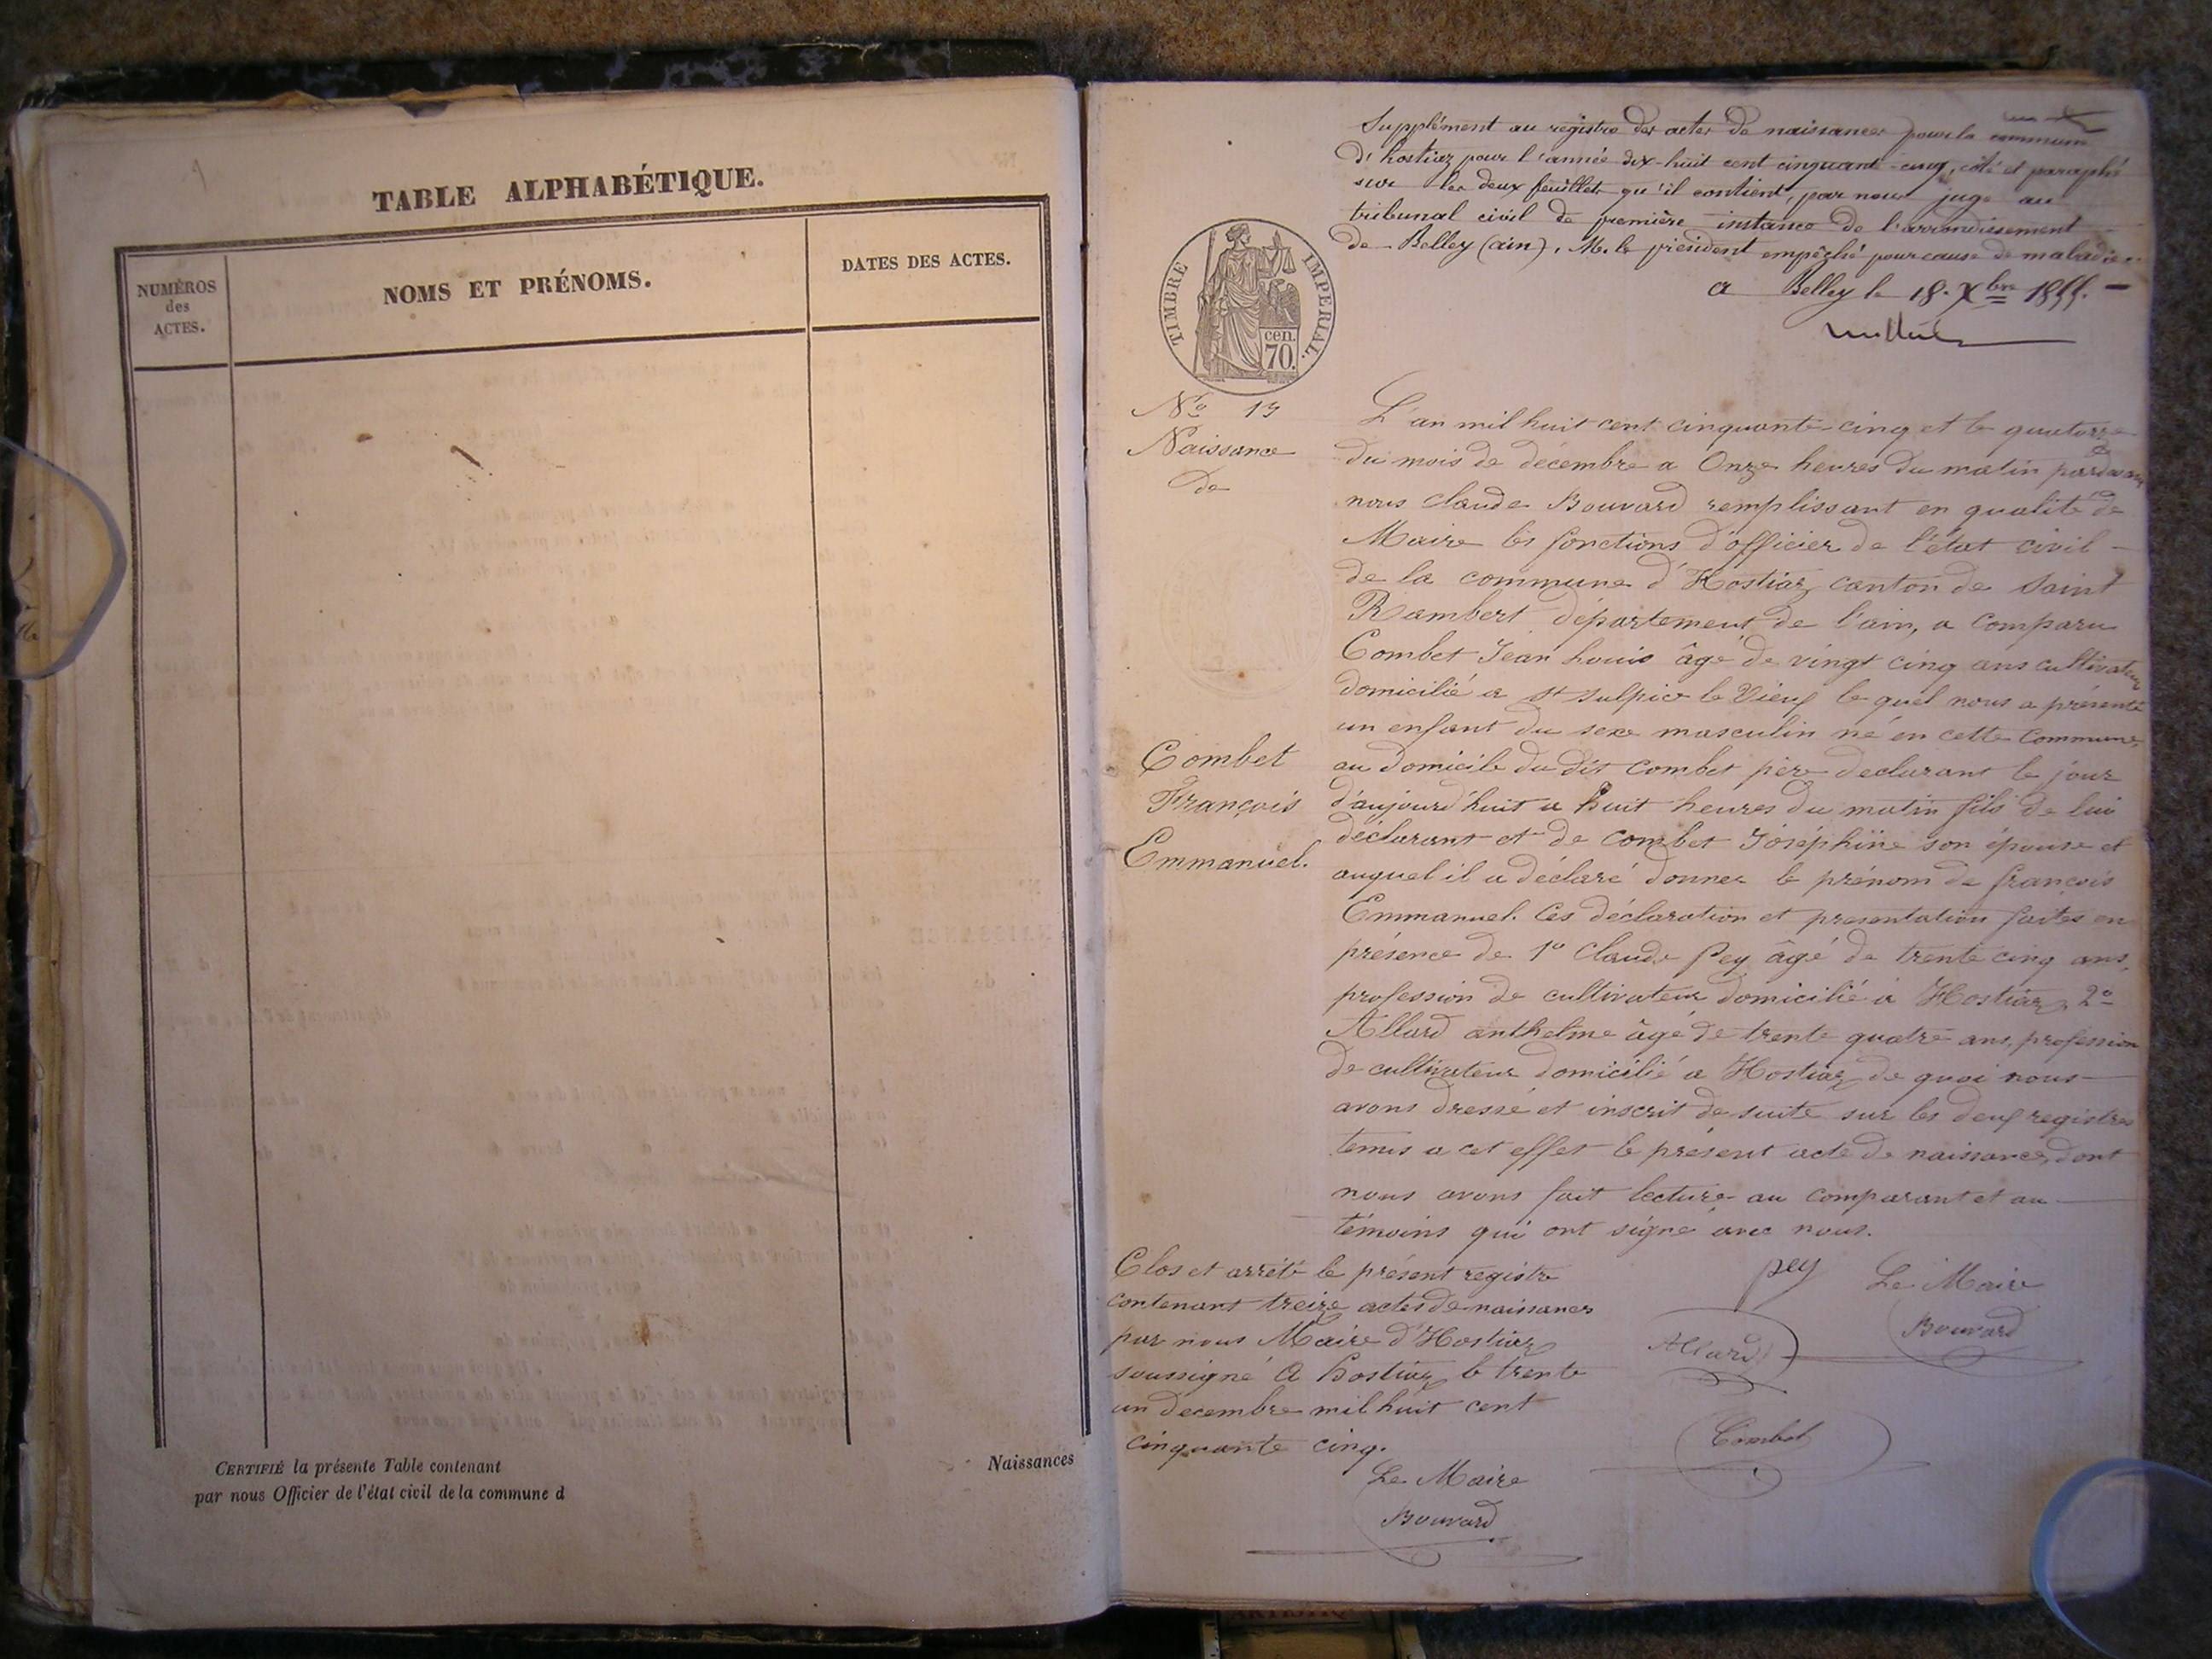 TABLE ALPHABÉTIQUE.
NUMÉROS
des
ACTES.
NOMS ET PRÉNOMS.
DATES DES ACTES.
CERTIFIÉ la présente Table contenant
Naissances
par nous Officier de l'état civil de la commune d
Supplément au registre des actes de naissances pour la commune
d'hostiaz pour l'année dix-huit cent cinquante-cinq, coté et paraphé
sur les deux feuillets qu'il contient, par nous juge au
tribunal civil de première instance de l'arrondissement
de Belley (ain), M. le président empêché pour cause de maladie.
a Belley le 18. Xbre 1855.
TIMBRE IMPERIAL.
cen.
70.
No 13
Naissance
de
Combet
François
Emmanuel.
L'an mil huit cent cinquante-cinq et le quatorze
du mois de décembre a Onze heures du matin pardevant
nous claude Bouvard remplissant en qualité de
Maire les fonctions d'officier de l'état civil
de la commune d'Hostiaz canton de Saint
Rambert département de l'ain, a comparu
Combet Jean Louis âgé de vingt cinq ans cultivateur
domicilié a St Sulpice le Vieux le quel nous a présenté
un enfant du sexe masculin né en cette commune,
au domicile du dit Combet père declarant le jour
d'aujourd'huit a huit heures du matin fils de lui
déclarant et de combet Joséphine son épouse et
auquel il a déclaré donner le prénom de françois
Emmanuel. Ces déclaration et presentation faites en
présence de 1o Claude Pey âgé de trente cinq ans,
profession de cultivateur domicilié à Hostiaz, 2o
Allard anthelme âgé de trente quatre ans, profession
de cultivateur domicilié a Hostiaz de quoi nous
avons dressé et inscrit de suite sur les deux registres
tenus a cet effet le présent acte de naissance, dont
nous avons fait lecture au comparant et au
témoins qui ont signé avec nous.
pey
Le Maire
Bouvard
Allard
Combet
Clos et arrêté le présent registre
contenant treize actes de naissances
par nous Maire d'Hostiaz
soussigné A hostiaz le trente
un decembre mil huit cent
cinquante cinq.
Le Maire
Bouvard